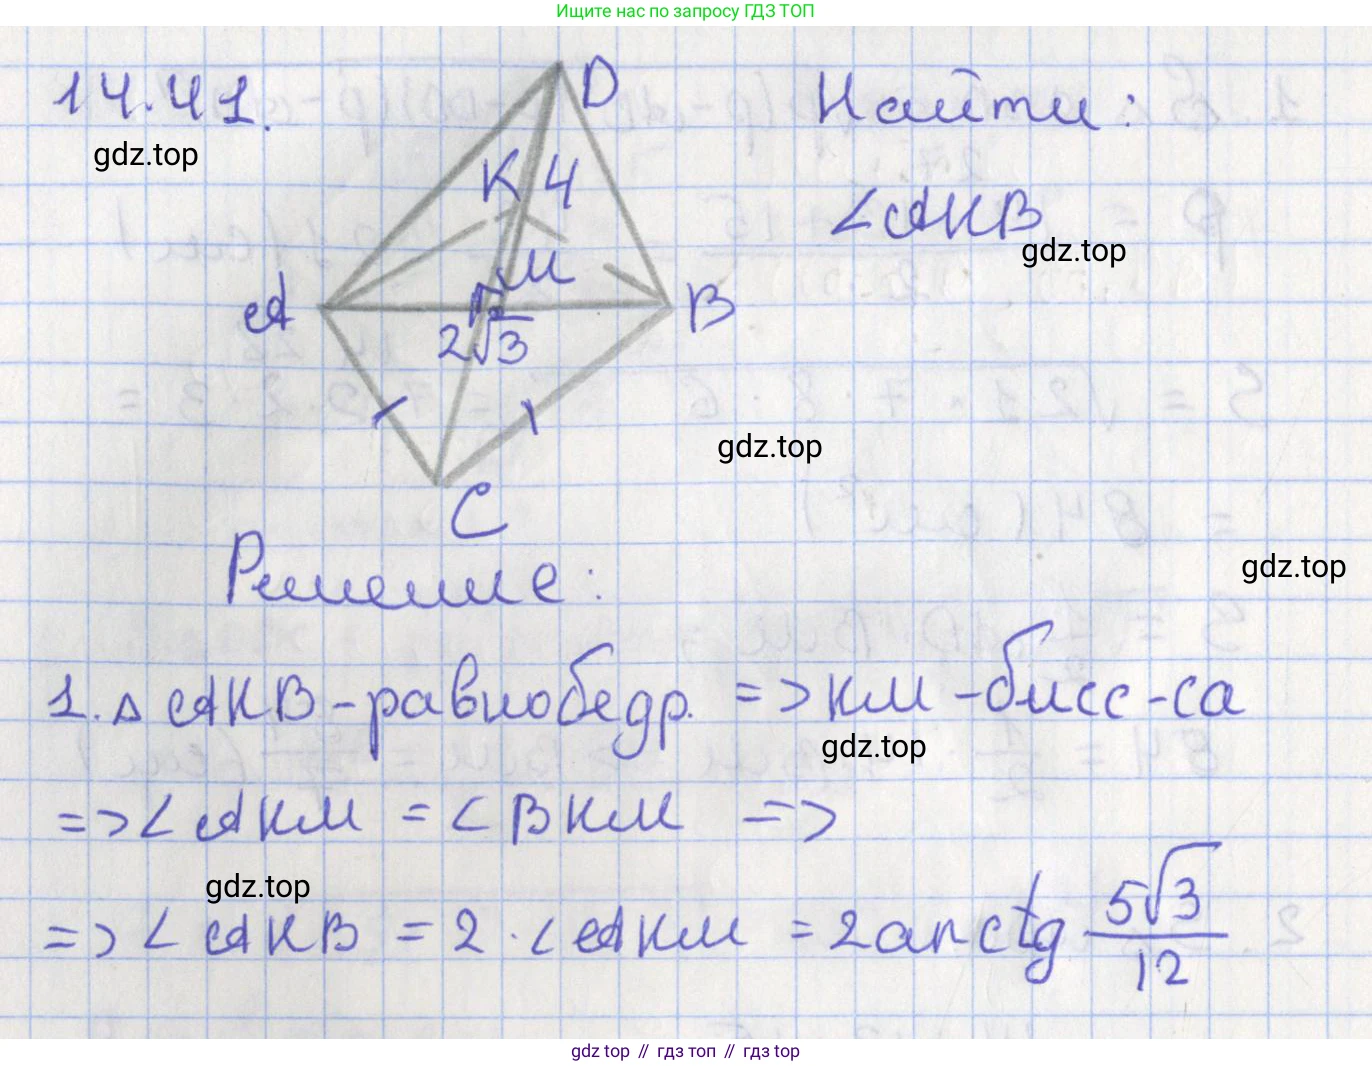 Ищите нас по запросу ГДЗ ТОП
14.41.
D
Найти:
gdz.top
K 4
∠AKB
gdz.top
M
A
B
2√3
gdz.top
C
Решение:
gdz.top
1. △ AKB - равнобедр. => KM - бисс-са
gdz.top
=> ∠AKM = ∠BKM =>
gdz.top
=> ∠AKB = 2 · ∠AKM = 2arctg 5√3/12
gdz top // гдз топ // gdz top